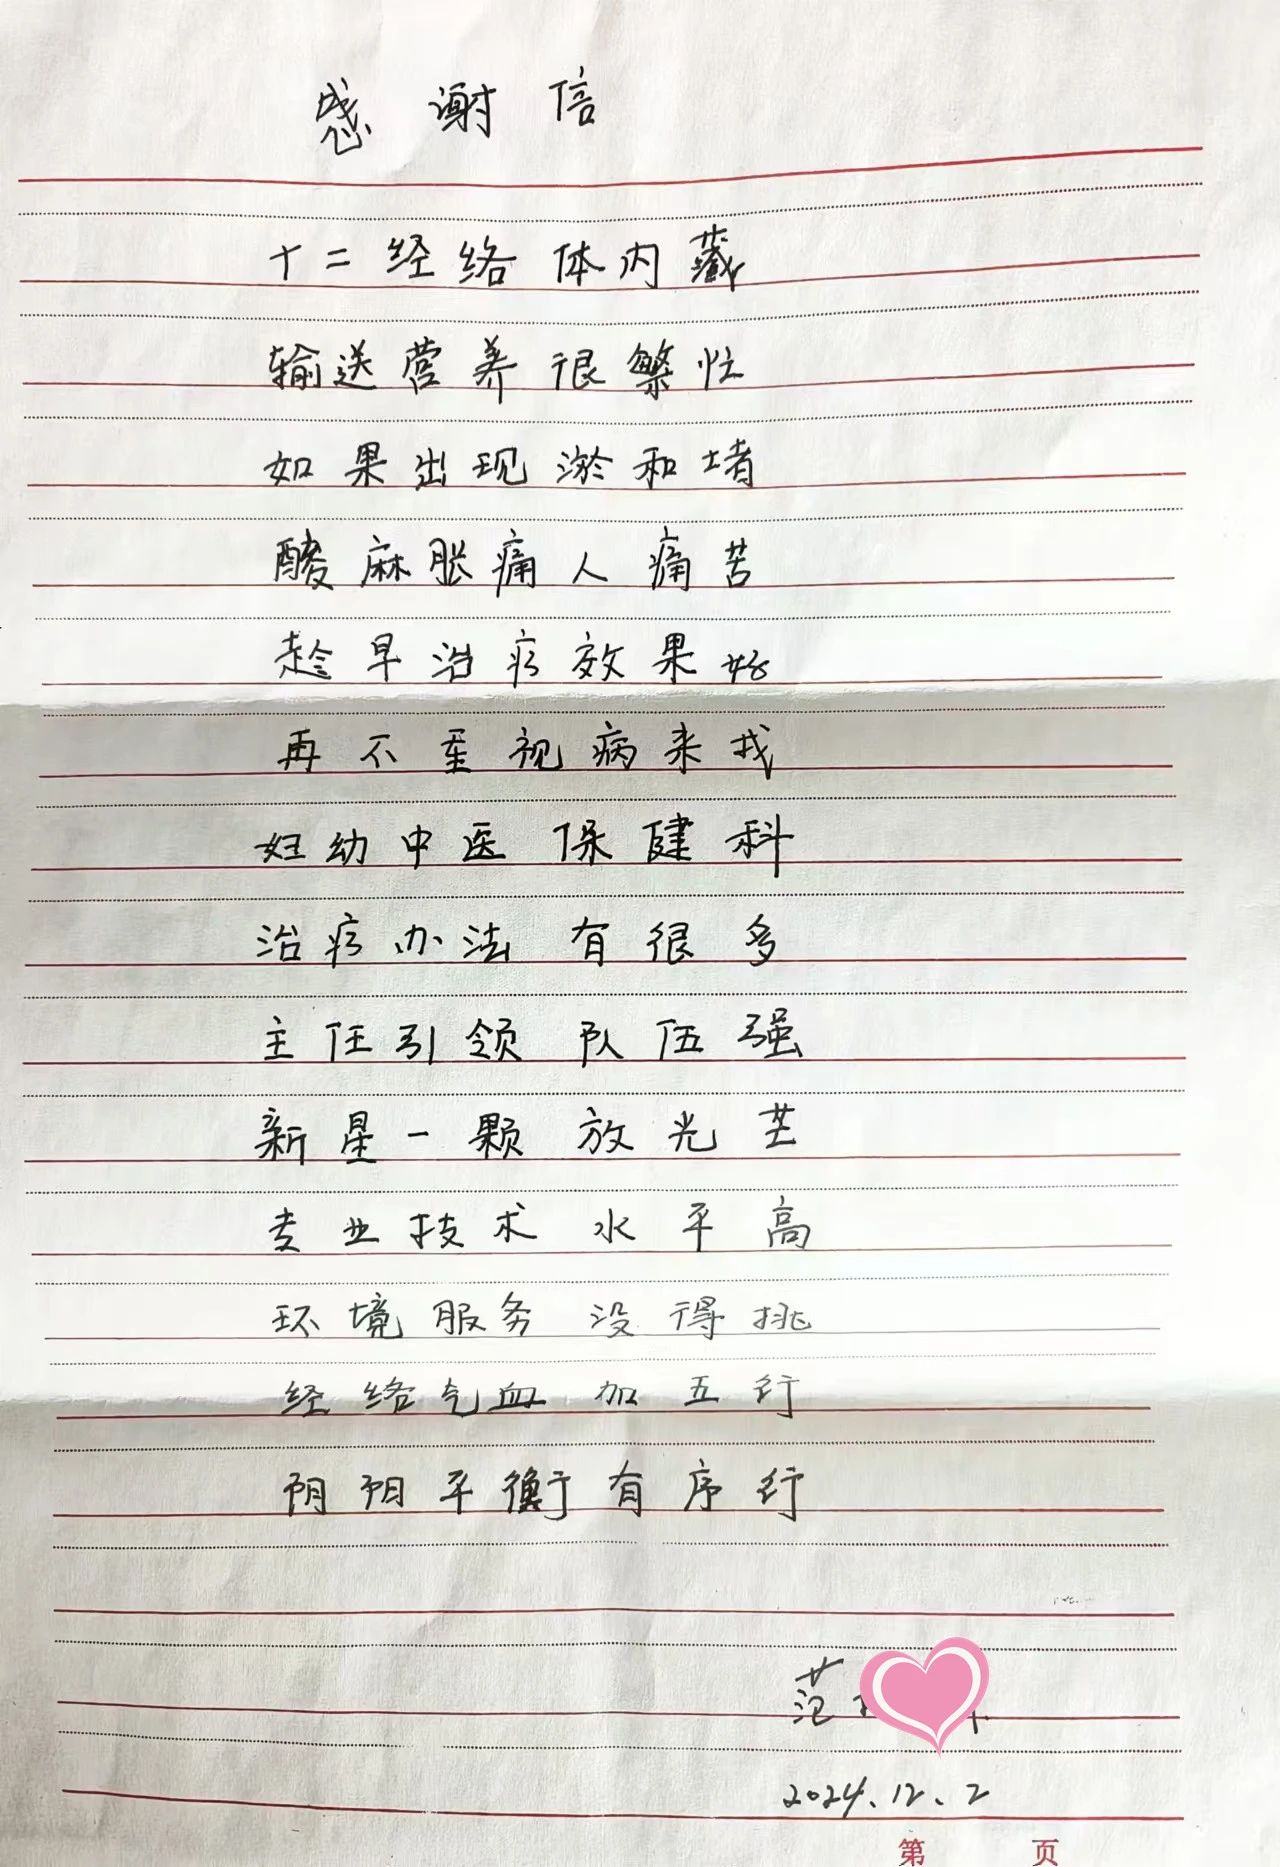 感谢信
十二经络体内藏
输送营养很繁忙
如果出现淤和堵
酸麻胀痛人痛苦
趁早治疗效果好
再不重视病来找
妇幼中医保健科
治疗办法有很多
主任引领队伍强
新星一颗放光芒
专业技术水平高
环境服务没得挑
经络气血加五行
阴阳平衡有序行
范
2024.12.2
第 页